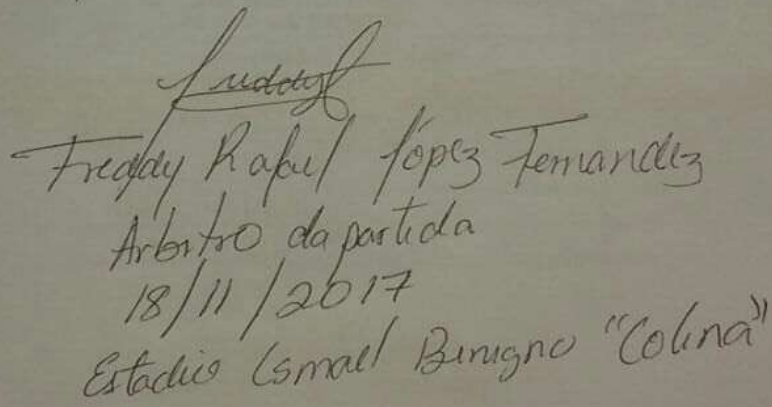 Freddy
Freddy Rafael López Fernandez
Arbitro da partida
18/11/2017
Estadio Ismael Benigno "Colina"